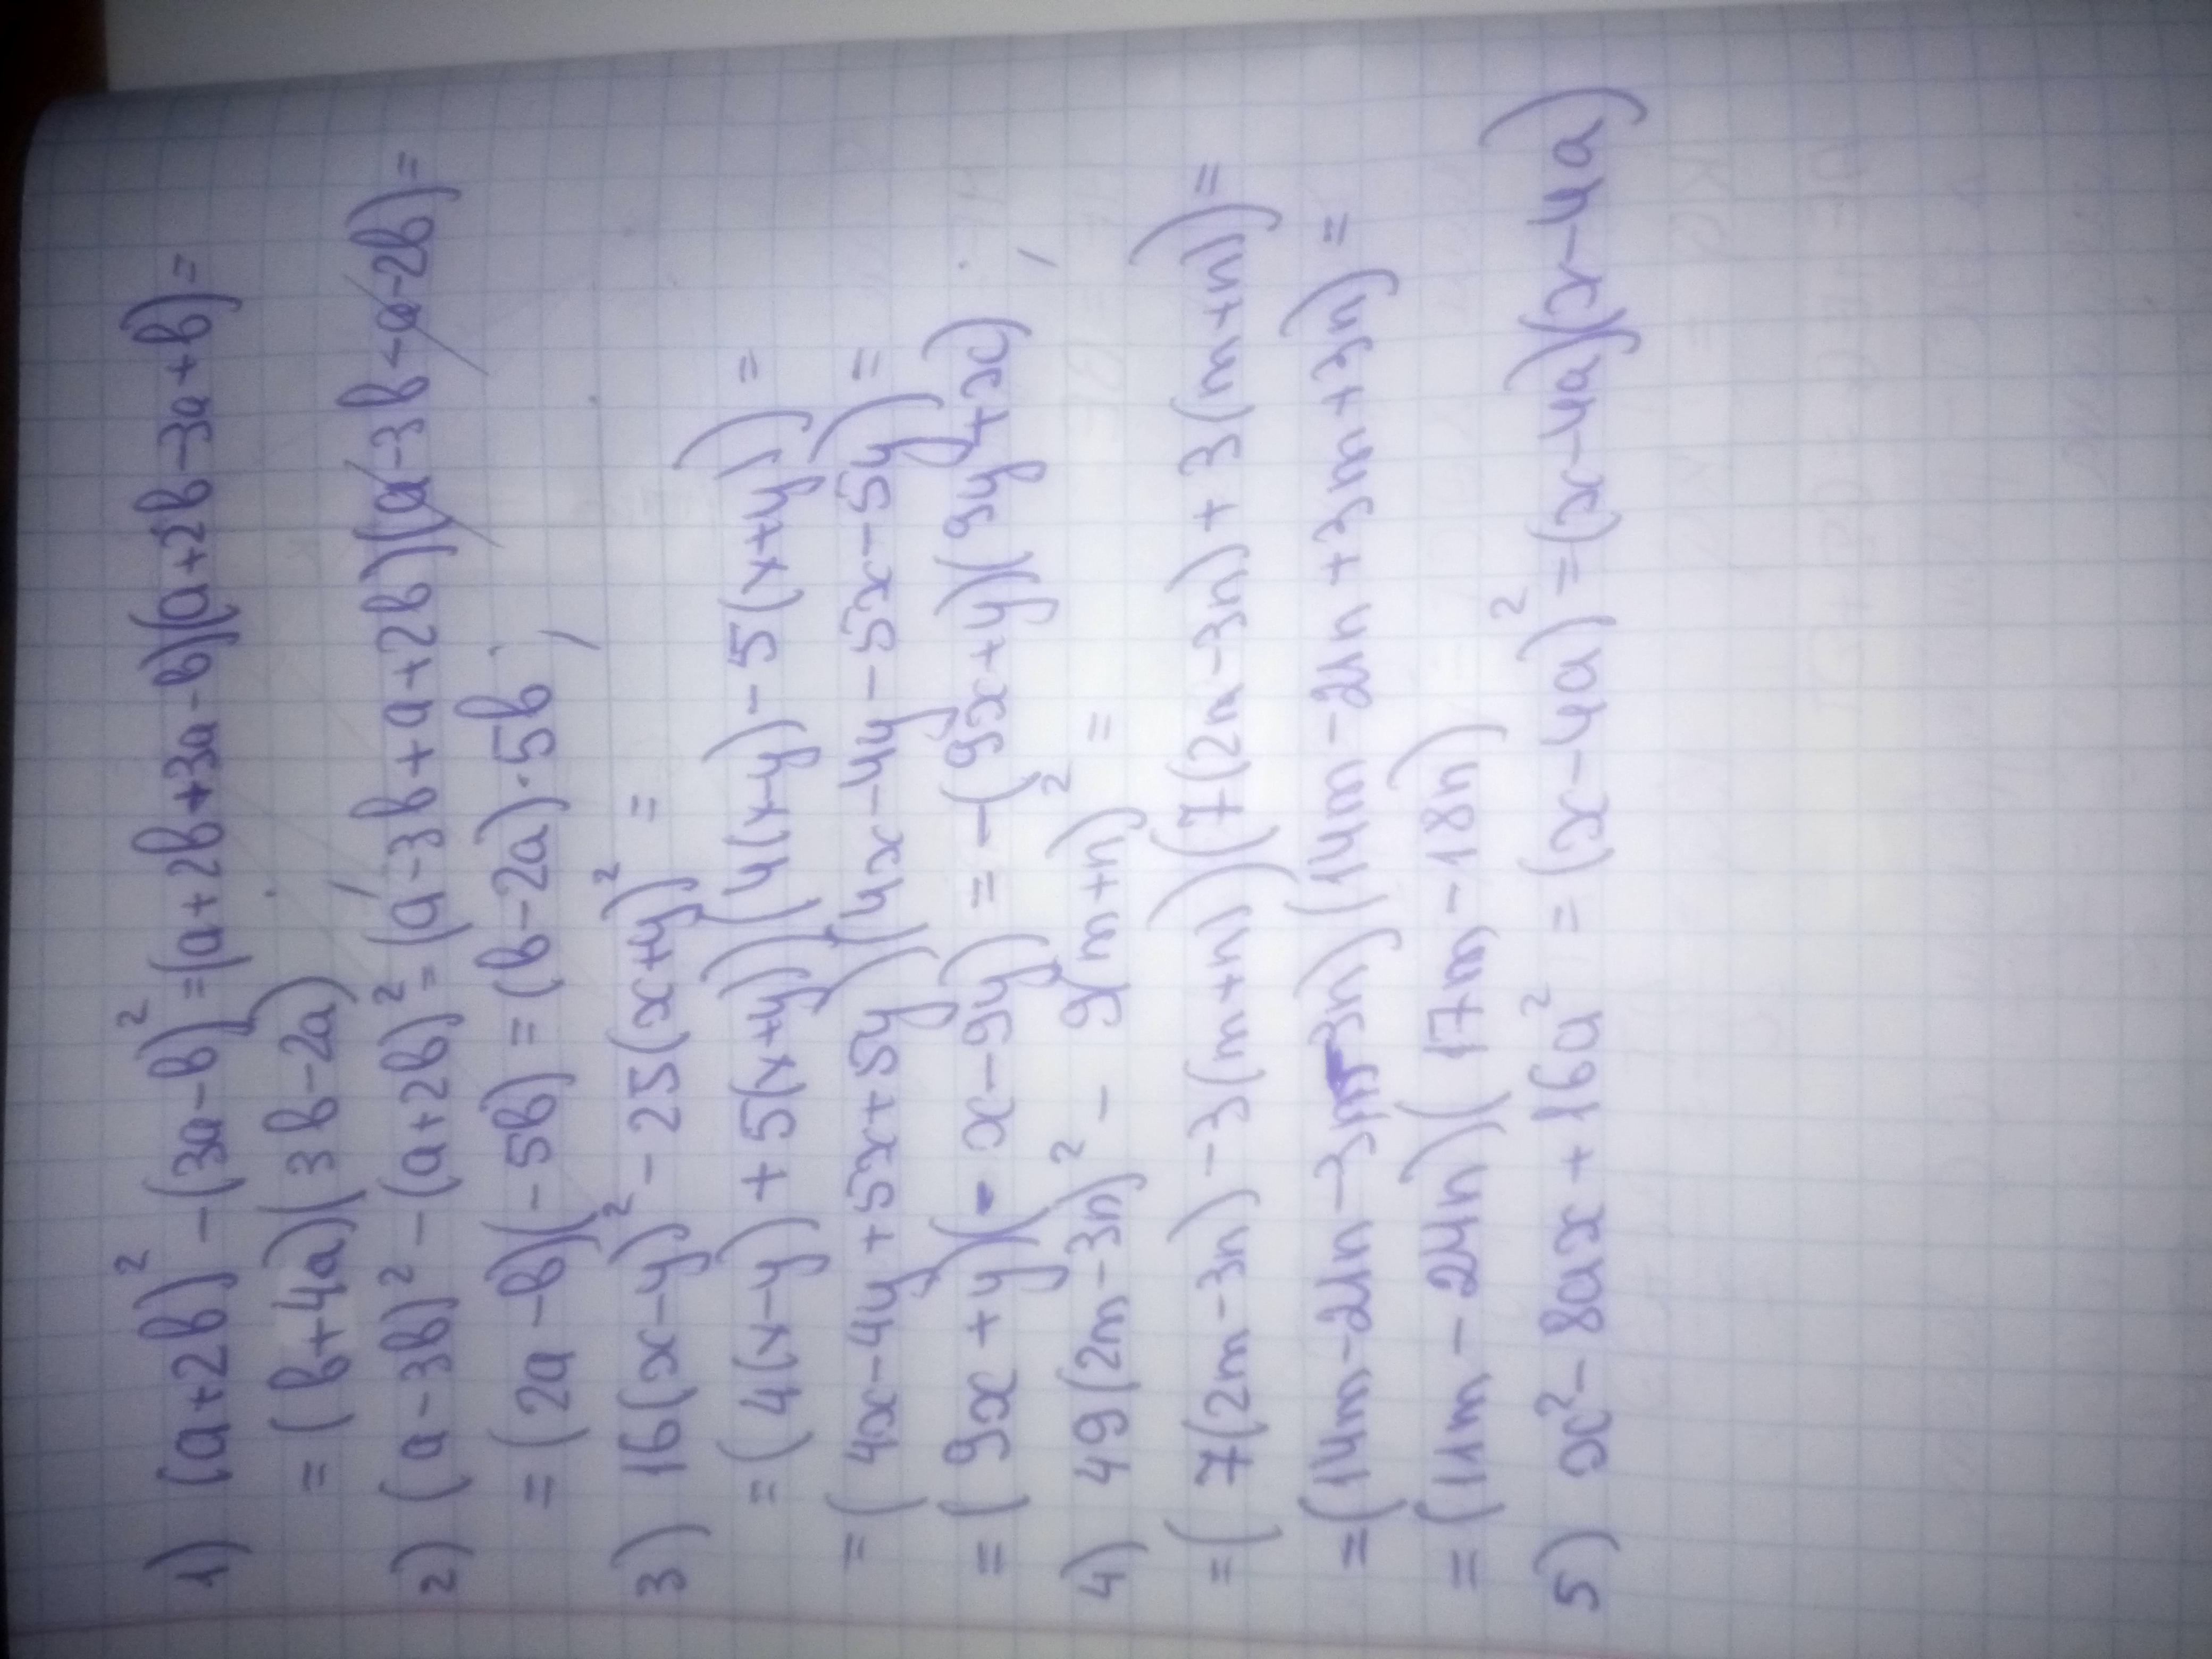 1) (a+2b)² -(3a-b)² =(a+2b+3a-b)(a+2b-3a+b)=
= (b+4a)(3b-2a)
2) (a-3b)² -(a+2b)² = (a-3b+a+2b)(a-3b-a-2b)=
= (2a-b)(-5b) = (b-2a)·5b
3) 16(x-y)² - 25(x+y)² =
=(4(x-y)+5(x+y))(4(x-y)-5(x+y)) =
=(4x-4y+5x+5y)(4x-4y-5x-5y) =
=(9x+y)(-x-9y) = -(9x+y)(9y+x)
4) 49(2m-3n)² - 9(m+n)² =
=(7(2m-3n)-3(m+n))(7(2m-3n)+3(m+n))=
=(14m-21n-3m-3n)(14m-21n+3m+3n) =
=(11m-24n)(17m-18n)
5) x²-8ax+16a² = (x-4a)² =(x-4a)(x-4a)